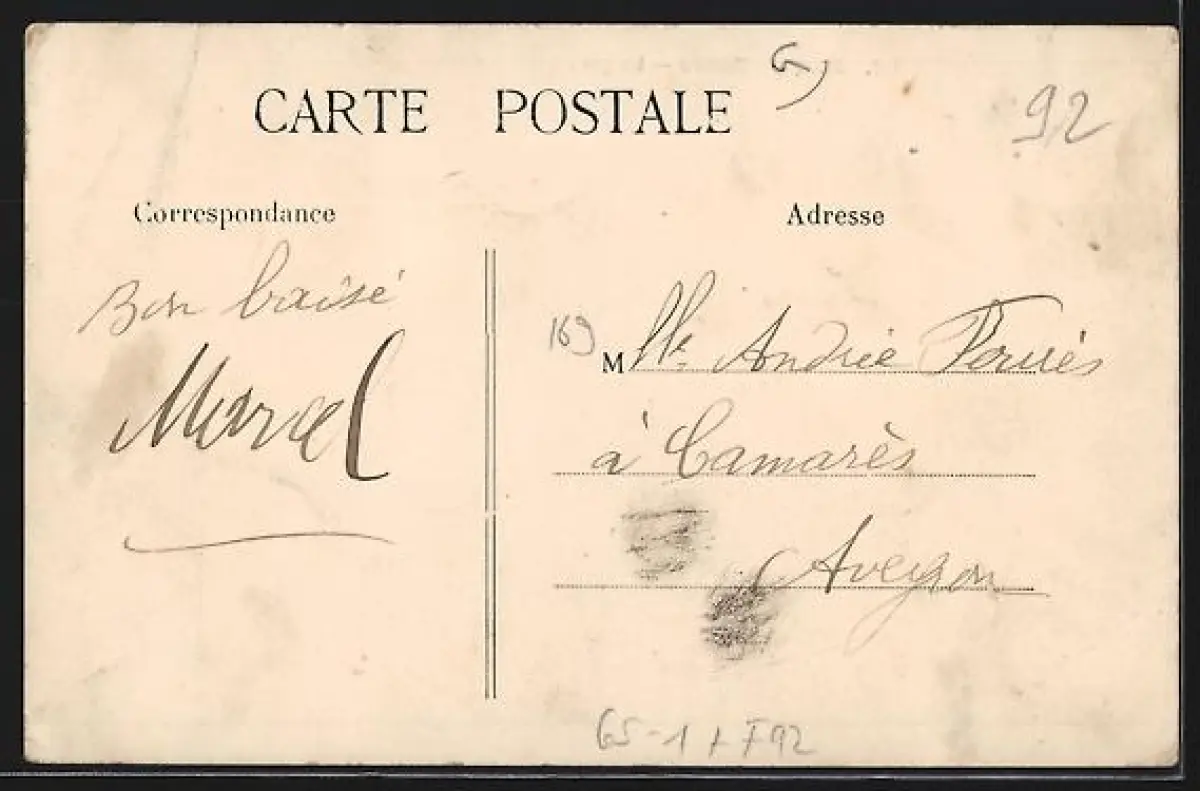 CARTE POSTALE
92
Correspondance
Adresse
Bon baisé
Marcel
169
Mlle Andrée
à Camarès
Aveyron
65-1 + F92